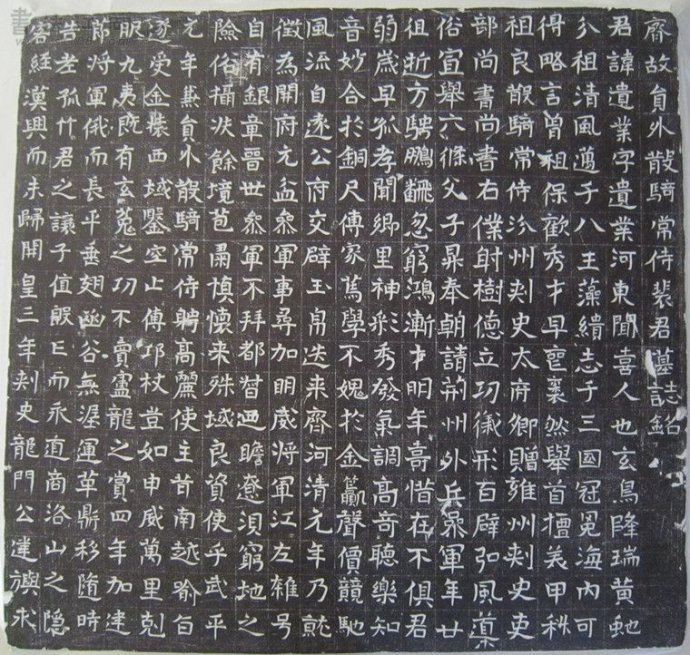 齊故員外散騎常侍裴君墓誌銘
君諱遺業字遺業河東聞喜人也玄鳥降瑞黃虵
分祖清風邁于八王藻繢志于三國冠冕海內可
得略言曾祖保歡秀才早裒然舉首擅美甲科
祖良散騎常侍汾州刺史太府卿贈雍州刺史吏
部尚書尚書右僕射樹德立功儀形百辟弘風導
俗宣舉六條父子昇奉朝請荊州外兵參軍年廿
徂逝方騁鵬翻忽窮鴻漸才明年壽惜在不俱君
弱歲早孤孝聞鄉里神彩秀發氣調高奇聽樂知
音妙合於銅尺傳家篤學不媿於金籯聲價競馳
風流自遠公府交辟玉帛迭來齊河清元年乃就
徵為開府元盆參軍事尋加明威將軍江左雜号
自有銀章晉世參軍不拜都督迴瞻遼浿窮地之
險俗攝餘境苞肅慎懷來殊域良資使乎武平
元年兼員外散騎常侍聘高麗使主昔南越喻旨
遂受金裝西域鑿空止傳邛杖豈如申威萬里剋
服九夷既有玄菟之功不賣盧龍之賞四年加建
節將軍俄而長平垂翅函谷無渥運革鼎移隨時
告老孤竹君之讓子值殷亡而永逝商洛山之隱
客經漢興而未歸開皇三年刺史龍門公達求